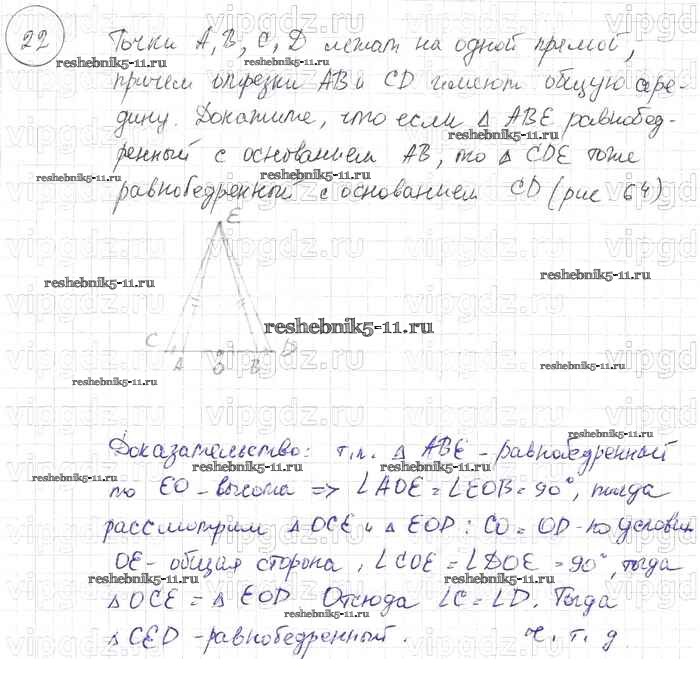 22
Точки A, B, C, D лежат на одной прямой,
причем отрезки AB и CD имеют общую сере-
дину. Докажите, что если △ ABE равнобед-
ренный с основанием AB, то △ CDE тоже
равнобедренный с основанием CD (рис 64)
E
C A O B D
Доказательство: т.к. △ ABE - равнобедренный
то EO - высота => ∠AOE = ∠EOB = 90°, тогда
рассмотрим △ OCE и △ EOD : CO = OD - по условию
OE - общая сторона, ∠COE = ∠DOE = 90°, тогда
△ OCE = △ EOD Отсюда ∠C = ∠D. Тогда
△ CED - равнобедренный. ч. т. д.
reshebnik5-11.ru
vipgdz.ru